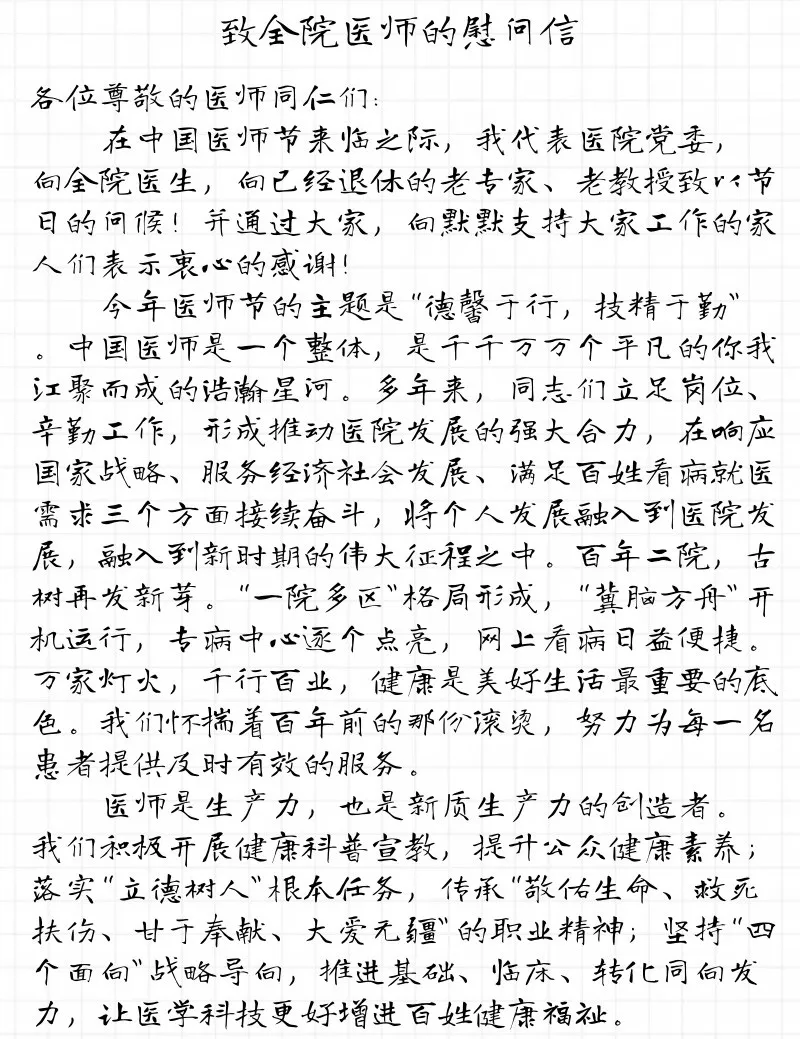 致全院医师的慰问信
各位尊敬的医师同仁们：
在中国医师节来临之际，我代表医院党委，
向全院医生，向已经退休的老专家、老教授致以节
日的问候！并通过大家，向默默支持大家工作的家
人们表示衷心的感谢！
今年医师节的主题是“德馨于行，技精于勤”
。中国医师是一个整体，是千千万万个平凡的你我
江聚而成的浩瀚星河。多年来，同志们立足岗位、
辛勤工作，形成推动医院发展的强大合力，在响应
国家战略、服务经济社会发展、满足百姓看病就医
需求三个方面接续奋斗，将个人发展融入到医院发
展，融入到新时期的伟大征程之中。百年二院，古
树再发新芽。“一院多区”格局形成，“冀脑方舟”开
机运行，专病中心逐个点亮，网上看病日益便捷。
万家灯火，千行百业，健康是美好生活最重要的底
色。我们怀揣着百年前的那份滚烫，努力为每一名
患者提供及时有效的服务。
医师是生产力，也是新质生产力的创造者。
我们积极开展健康科普宣教，提升公众健康素养；
落实“立德树人”根本任务，传承“敬佑生命、救死
扶伤、甘于奉献、大爱无疆”的职业精神；坚持“四
个面向”战略导向，推进基础、临床、转化同向发
力，让医学科技更好增进百姓健康福祉。